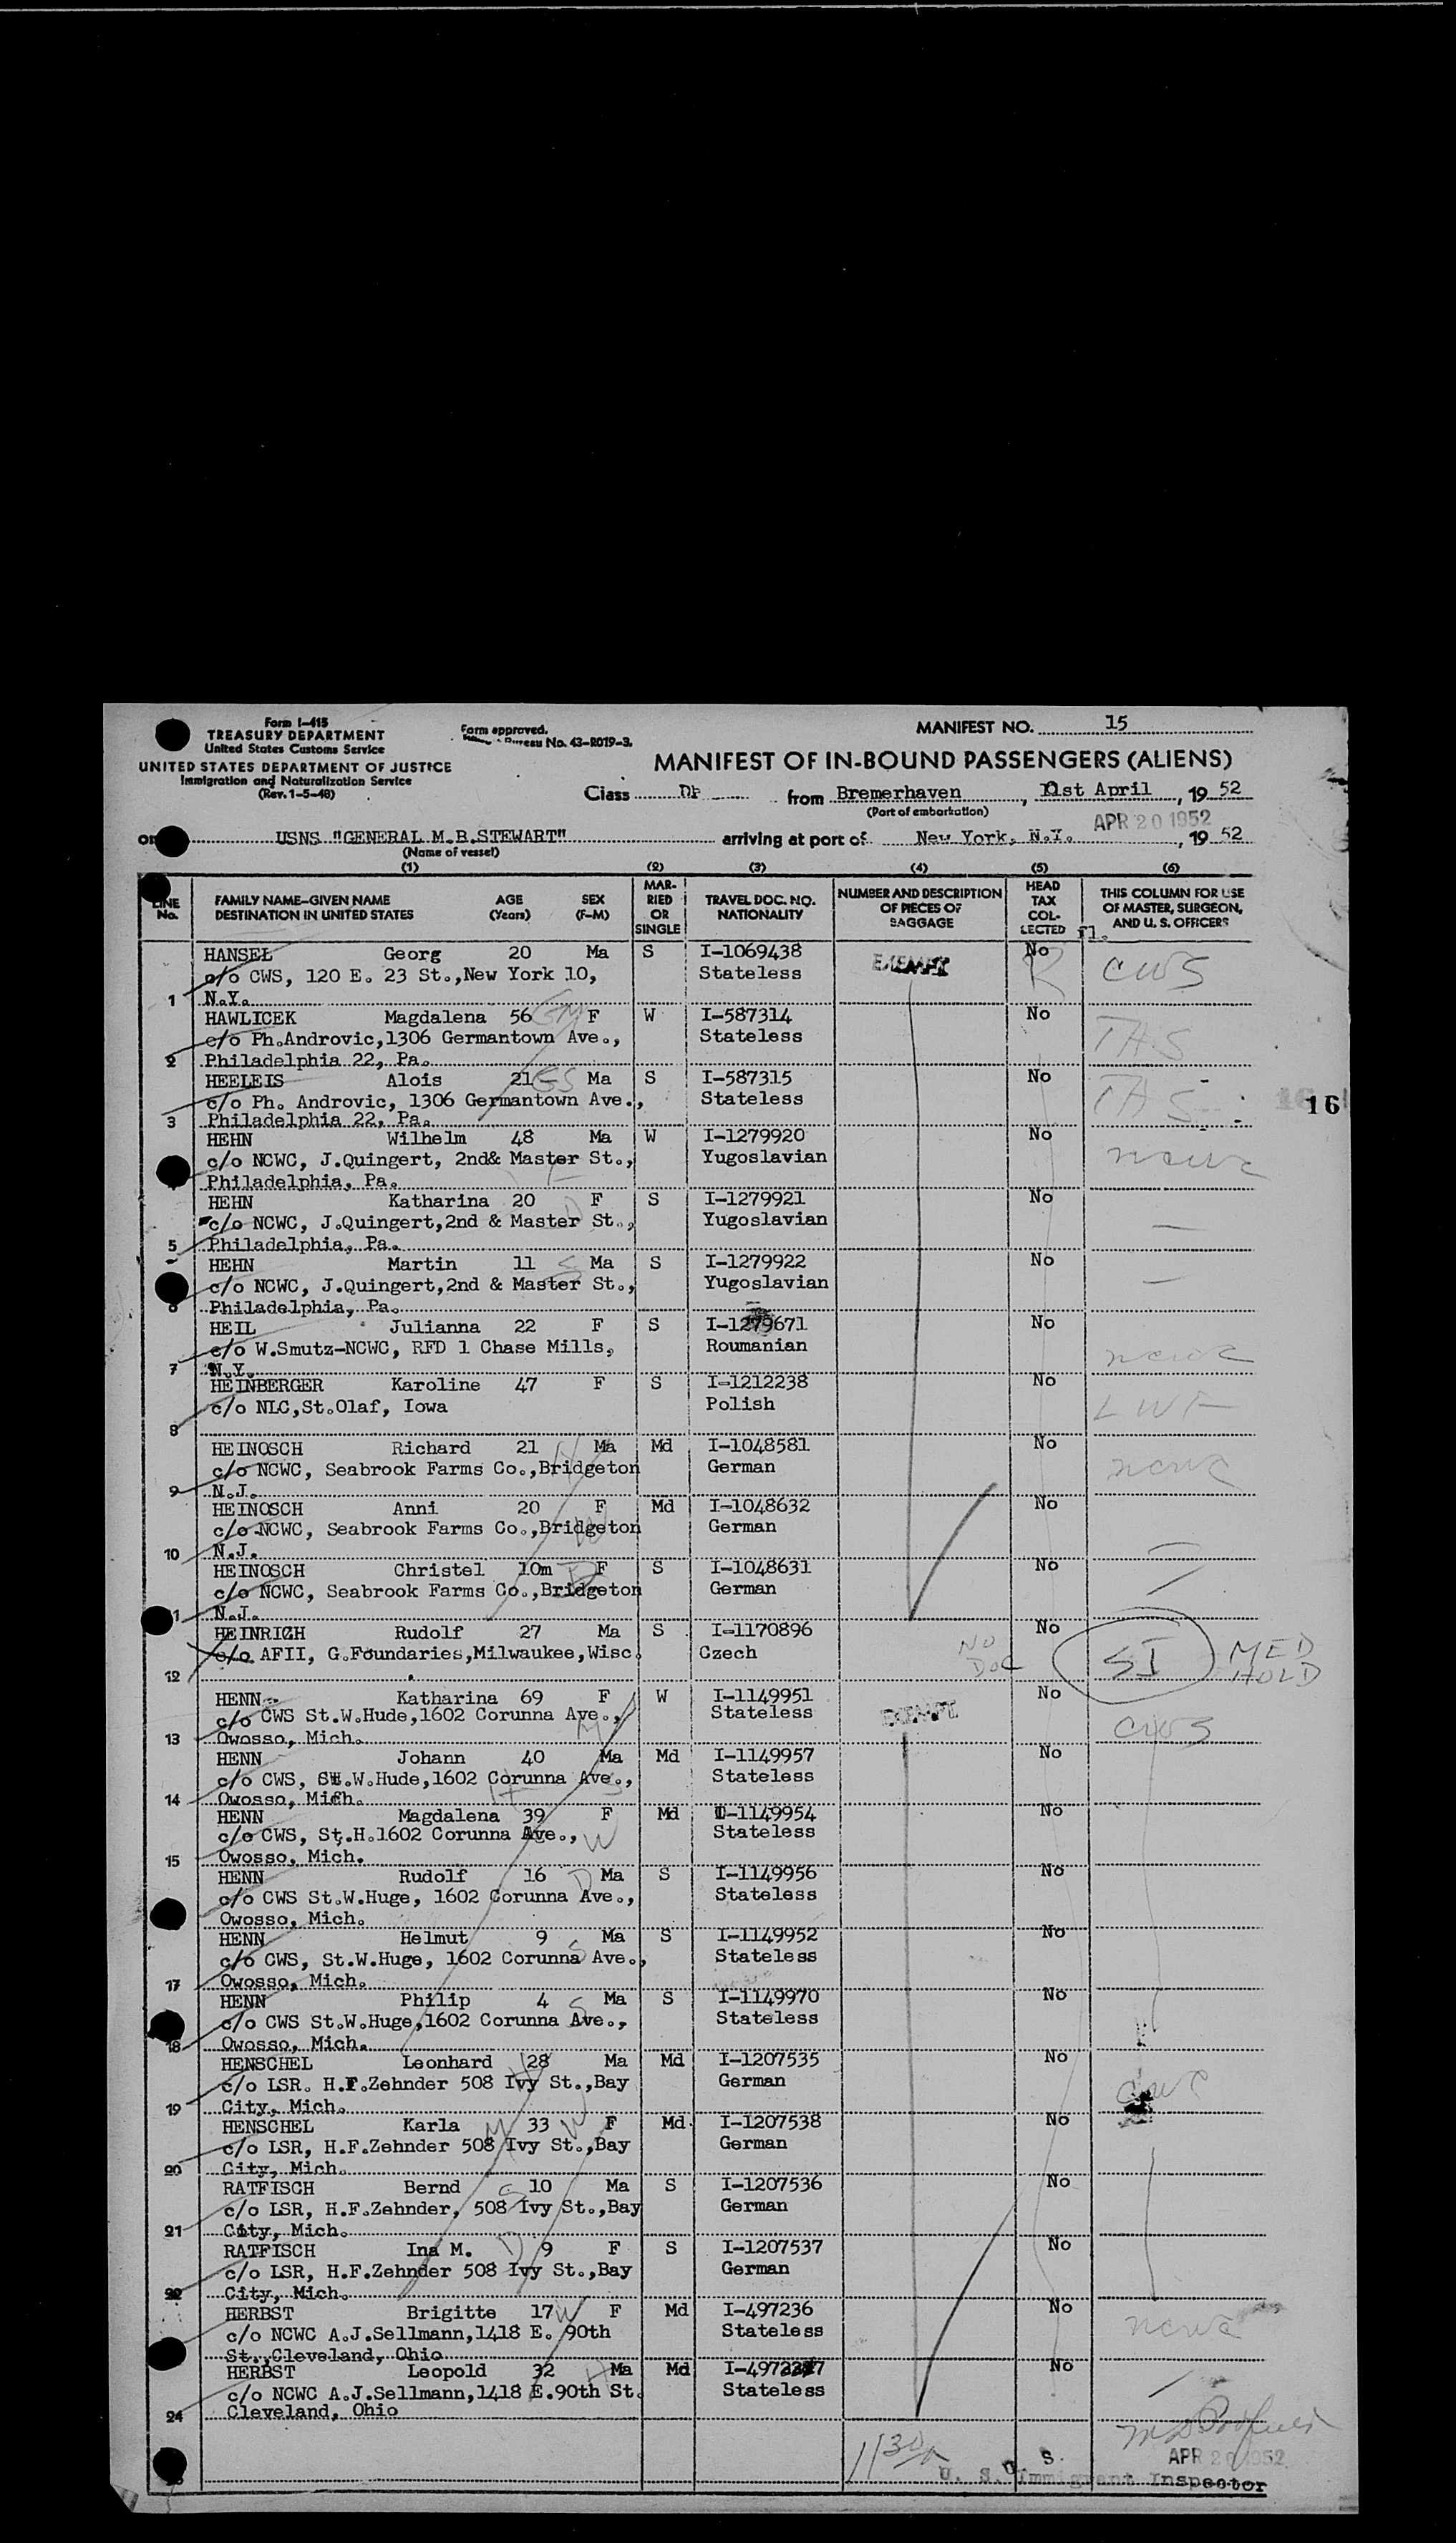 Form I-415
TREASURY DEPARTMENT
United States Customs Service
UNITED STATES DEPARTMENT OF JUSTICE
Immigration and Naturalization Service
(Rev. 1-5-48)
Form approved.
Bureau No. 43-R019-3.
MANIFEST NO. 15
MANIFEST OF IN-BOUND PASSENGERS (ALIENS)
Class DP from Bremerhaven, 11st April, 19 52
(Port of embarkation)
APR 20 1952
on USNS "GENERAL M.B.STEWART" arriving at port of New York, N.Y., 19 52
(Name of vessel)
(1) (2) (3) (4) (5) (6)
LINE No. FAMILY NAME–GIVEN NAME DESTINATION IN UNITED STATES AGE (Years) SEX (F–M) MARRIED OR SINGLE TRAVEL DOC. NO. NATIONALITY NUMBER AND DESCRIPTION OF PIECES OF BAGGAGE HEAD TAX COLLECTED THIS COLUMN FOR USE OF MASTER, SURGEON, AND U. S. OFFICERS
HANSEL Georg 20 Ma S I-1069438 EXEMPT No R CWS
c/o CWS, 120 E. 23 St.,New York 10, Stateless
1 N.Y.
HAWLICEK Magdalena 56 F W I-587314 No
c/o Ph.Androvic,1306 Germantown Ave., Stateless TAS
2 Philadelphia 22, Pa.
HEELEIS Alois 21 GS Ma S I-587315 No
c/o Ph. Androvic, 1306 Germantown Ave., Stateless TAS
3 Philadelphia 22, Pa.
16
HEHN Wilhelm 48 Ma W I-1279920 No
c/o NCWC, J.Quingert, 2nd& Master St., Yugoslavian ncwc
Philadelphia, Pa.
HEHN Katharina 20 F S I-1279921 No
c/o NCWC, J.Quingert,2nd & Master St., Yugoslavian
5 Philadelphia, Pa.
HEHN Martin 11 S Ma S I-1279922 No
c/o NCWC, J.Quingert,2nd & Master St., Yugoslavian
6 Philadelphia, Pa.
HEIL Julianna 22 F S I-1279671 No
c/o W.Smutz-NCWC, RFD 1 Chase Mills, Roumanian ncwc
7 N.Y.
HEINBERGER Karoline 47 F S I-1212238 No
c/o NLC,St.Olaf, Iowa Polish LWF
8
HEINOSCH Richard 21 H Ma Md I-1048581 No
c/o NCWC, Seabrook Farms Co.,Bridgeton German ncwc
9 N.J.
HEINOSCH Anni 20 F Md I-1048632 No
c/o NCWC, Seabrook Farms Co.,Bridgeton W German
10 N.J.
HEINOSCH Christel 10m D F S I-1048631 No
c/o NCWC, Seabrook Farms Co.,Bridgeton German
11 N.J.
HEINRICH Rudolf 27 Ma S I-1170896 No
c/o AFII, G.Foundaries,Milwaukee,Wisc. Czech NO DOC SI MED HOLD
12
HENN Katharina 69 F W I-1149951 EXEMPT No
c/o CWS St.W.Hude,1602 Corunna Ave., M Stateless CWS
13 Owosso, Mich.
HENN Johann 40 Ma Md I-1149957 No
c/o CWS, St.W.Hude,1602 Corunna Ave., H S Stateless
14 Owosso, Mich.
HENN Magdalena 39 F Md I-1149954 No
c/o CWS, St.H.1602 Corunna Ave., W Stateless
15 Owosso, Mich.
HENN Rudolf 16 D Ma S I-1149956 No
c/o CWS St.W.Huge, 1602 Corunna Ave., Stateless
Owosso, Mich.
HENN Helmut 9 Ma S I-1149952 No
c/o CWS, St.W.Huge, 1602 Corunna Ave., S Stateless
17 Owosso, Mich.
HENN Philip 4 S Ma S I-1149970 No
c/o CWS St.W.Huge,1602 Corunna Ave., Stateless
18 Owosso, Mich.
HENSCHEL Leonhard 28 Ma Md I-1207535 No
c/o LSR. H.F.Zehnder 508 Ivy St.,Bay H German
19 City, Mich.
HENSCHEL Karla 33 W F Md I-1207538 No
c/o LSR, H.F.Zehnder 508 Ivy St.,Bay German
20 City, Mich.
RATFISCH Bernd S 10 Ma S I-1207536 No
c/o LSR, H.F.Zehnder, 508 Ivy St.,Bay German
21 City, Mich.
RATFISCH Ina M. D 9 F S I-1207537 No
c/o LSR, H.F.Zehnder 508 Ivy St.,Bay German
22 City, Mich.
HERBST Brigitte 17 W F Md I-497236 No
c/o NCWC A.J.Sellmann,1418 E. 90th Stateless ncwc
St.,Cleveland, Ohio
HERBST Leopold 32 H Ma Md I-497237 No
c/o NCWC A.J.Sellmann,1418 E.90th St. Stateless
24 Cleveland, Ohio
1130A
APR 20 1952
U. S. Immigrant Inspector